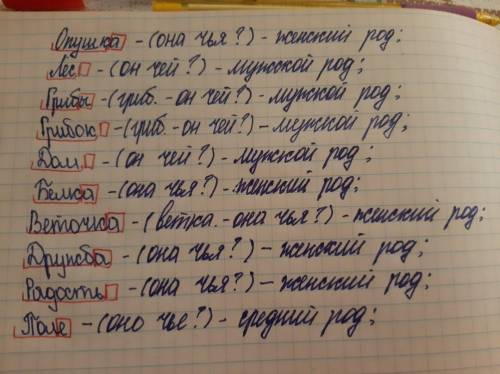 Опушка - (она чья?) - женский род;
Лес - (он чей?) - мужской род;
Грибы - (гриб. - он чей?) - мужской род;
Грибок - (гриб. - он чей?) - мужской род;
Дом - (он чей?) - мужской род;
Белка - (она чья?) - женский род;
Веточка - (ветка. - она чья?) - женский род;
Дружба - (она чья?) - женский род;
Радость - (она чья?) - женский род;
Поле - (оно чье?) - средний род;